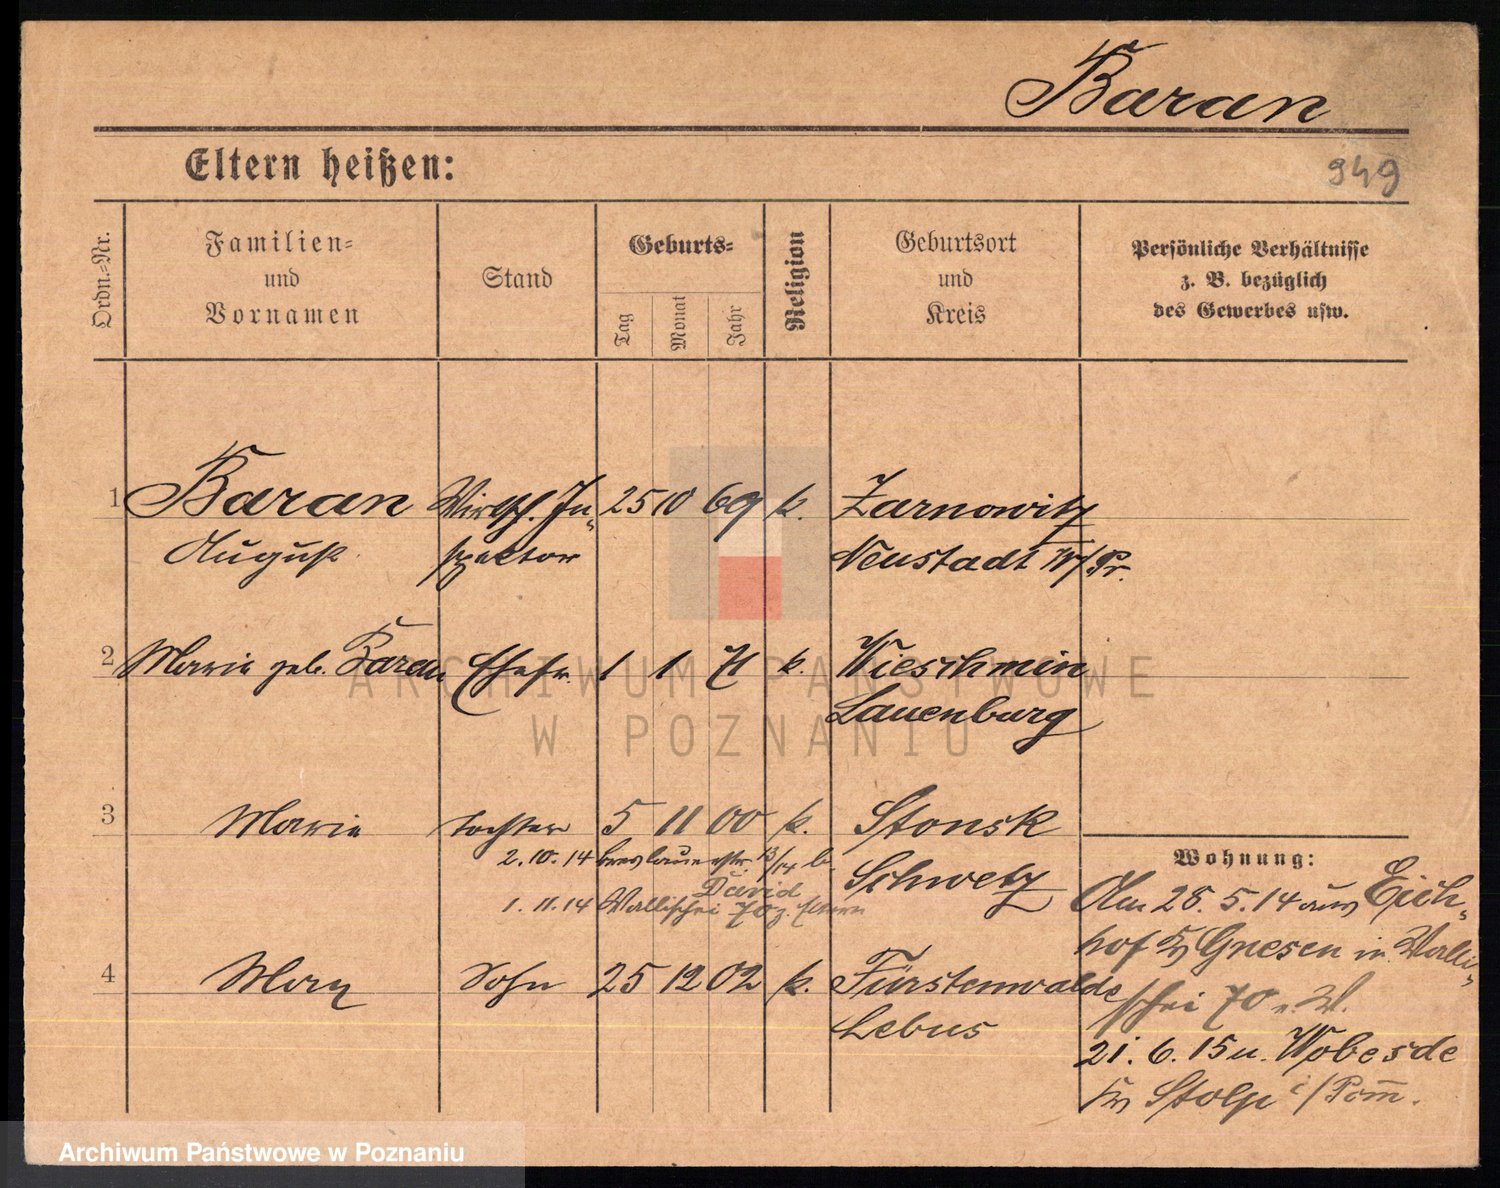 Baran
Eltern heißen:
949
Ordn.-Nr.
Familien-
und
Vornamen
Stand
Geburts-
Tag
Monat
Jahr
Religion
Geburtsort
und
Kreis
Persönliche Verhältnisse
z. B. bezüglich
des Gewerbes usw.
1 Baran Wirtsch. In- 25 10 69 k. Zarnowitz
August spektor Neustadt W/Pr.
2 Marie geb. Baran Ehefr. 1 1 71 k. Wieschmin
Lauenburg
3 Marie Tochter 5 11 00 k. Slonsk
2.10.14 Breslauerstr. 13/14 b. Schwetz
David
1.11.14 Wallischei 70 z. Eltern
4 Max Sohn 25 12 02 k. Fürstenwalde
Lebus
Wohnung:
Am 28.5.14 aus Eich-
hof Kr Gnesen in Walli-
schei 70
21.6.15 n. Wobesde
Kr Stolp i/Pom.
ARCHIWUM PAŃSTWOWE
W POZNANIU
Archiwum Państwowe w Poznaniu